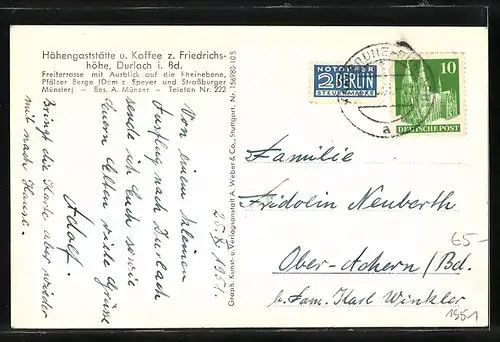 Höhengaststätte u. Kaffee z. Friedrichs-
höhe, Durlach i. Bd.
Freiterrasse mit Ausblick auf die Rheinebene,
Pfälzer Berge (Dom z. Speyer und Straßburger
Münster) – Bes. A. Münzer – Telefon Nr. 222
Von einem kleinen
Ausflug nach Durlach
sende ich Euch sowie
Euern Eltern viele Grüsse
Adolf.
Bringt die Karte aber wieder
mit nach Hause.
25. 1951.
Graph. Kunst- u. Verlagsanstalt A. Weber & Co., Stuttgart. Nr. 15698
NOTOPFER
2 BERLIN
STEUERMARKE
10
DEUTSCHE POST
a
Familie
Fridolin Neuberth
Ober-Achern/Bd.
b. Fam. Karl Winkler
65-
1951